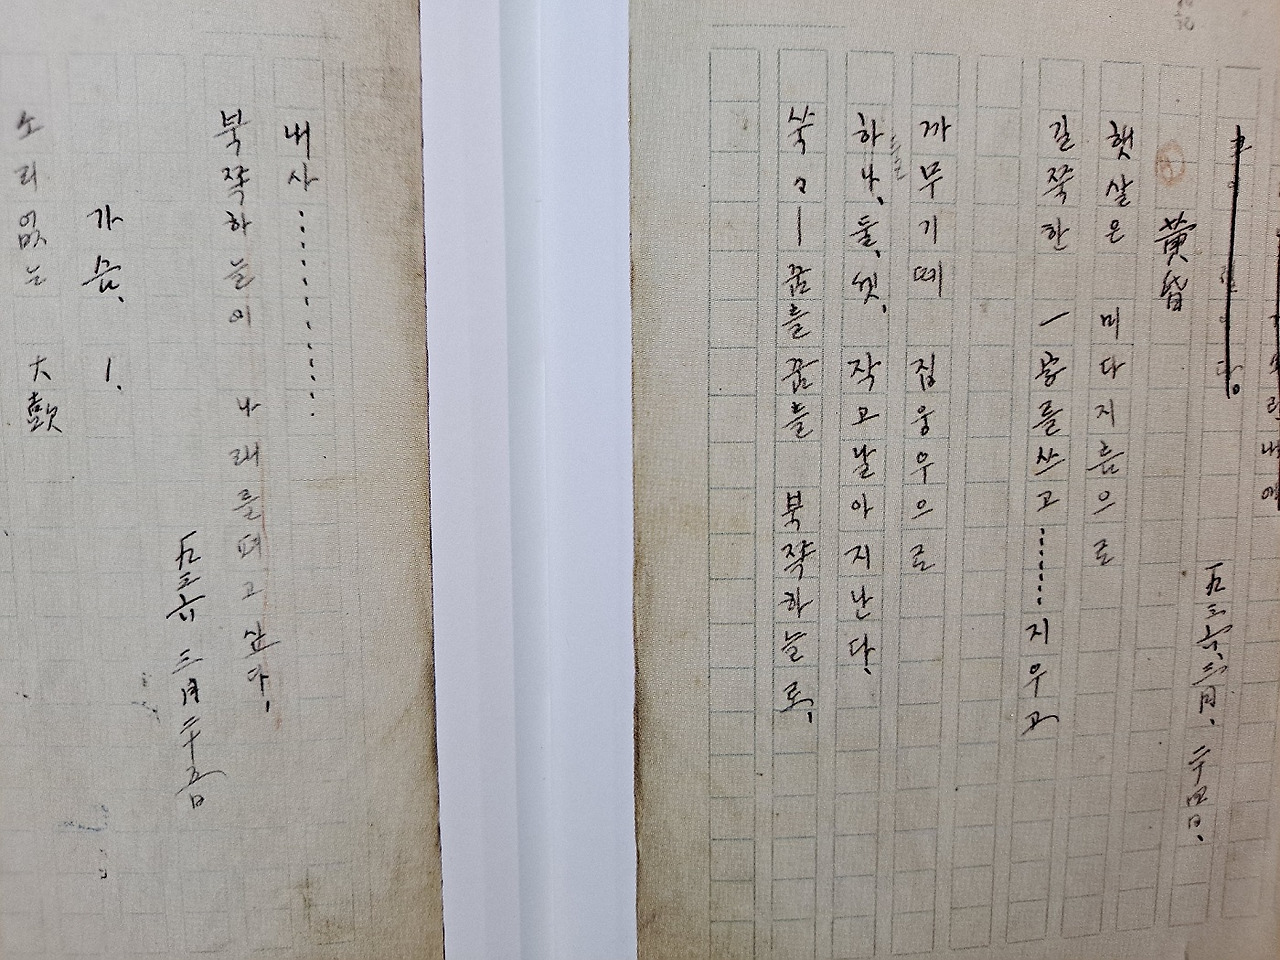 五三六、三月、二十四日、
黃昏
햇살은 미다지틈으로
길쭉한 一字를쓰고……지우고
까무기떼 집웅우으로
하나、둘、셋、작고날아지난다、
쑥々ㅡ꿈틀꿈틀 북쪽하늘로、
내사…………
북쪽하늘이 나래를펴고싶다、
五三六 三月二十五日
가슴、1、
소리없는 大鼓